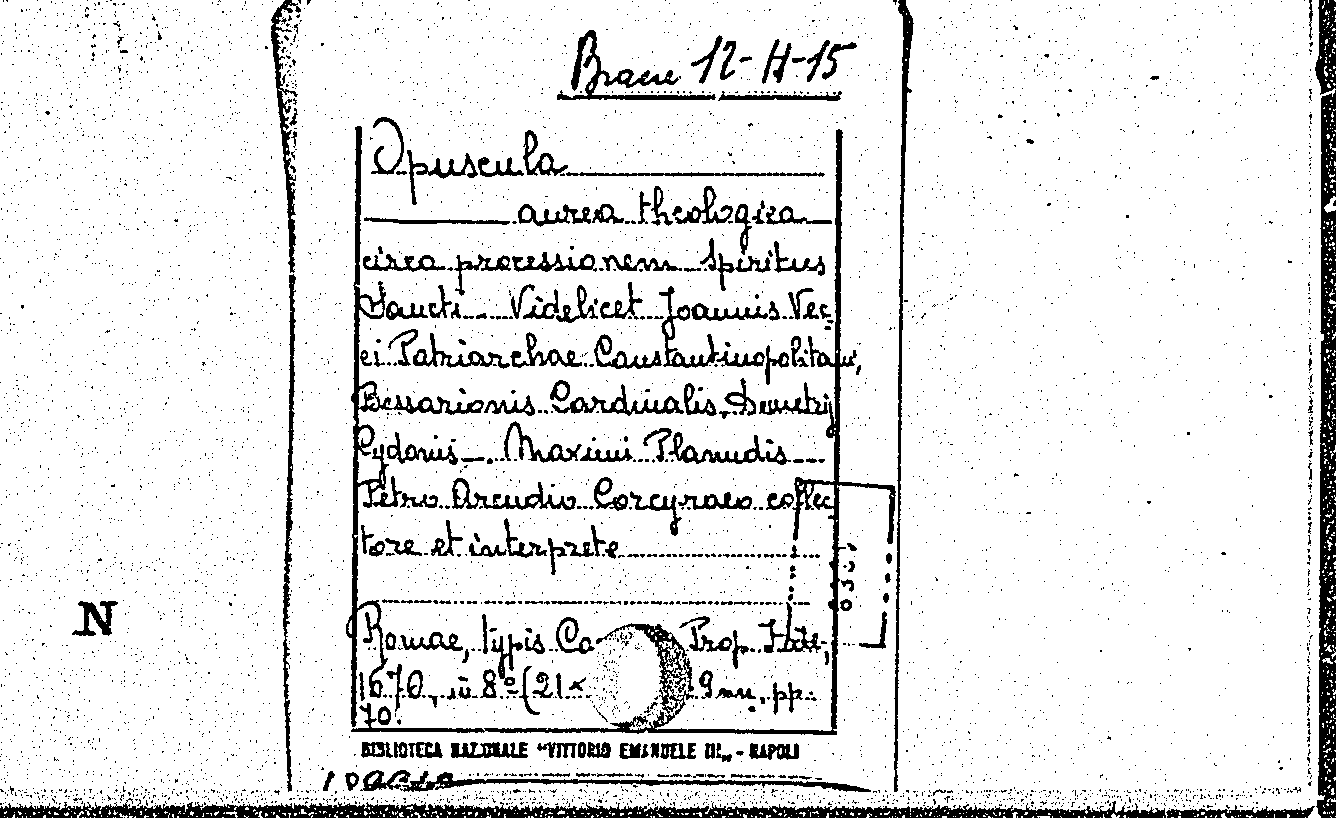 Brane 12-H-15
Opuscula
aurea theologica
circa processionem Spiritus
Sancti. Videlicet Joannis Vec-
ci Patriarchae Constantinopolitani,
Bessarionis Cardinalis, Demetrij
Cydonis. Maximi Planudis
Petro Arcudio Corcyraeo collec
tore et interprete
N
Romae, typis Prop. Fide,
1670, in 8º (21× 9 nn. pp.
70.
BIBLIOTECA NAZIONALE "VITTORIO EMANUELE III„ - NAPOLI